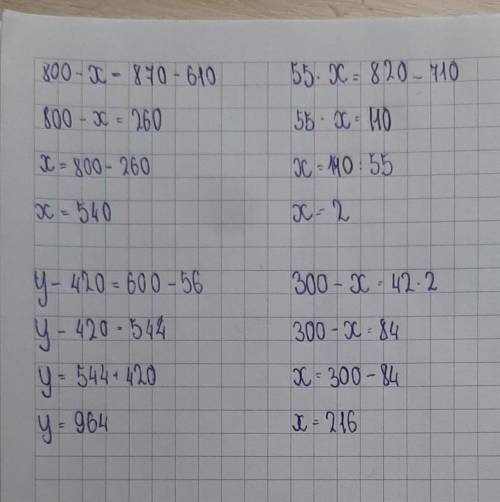 800 - x = 870 - 610
800 - x = 260
x = 800 - 260
x = 540
55 · x = 820 - 710
55 · x = 110
x = 110 : 55
x = 2
y - 420 = 600 - 56
y - 420 = 544
y = 544 + 420
y = 964
300 - x = 42 · 2
300 - x = 84
x = 300 - 84
x = 216